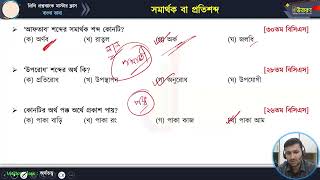 সমার্থক বা প্রতিশব্দ
'আফতাব' শব্দের সমার্থক শব্দ কোনটি? [৩০তম বিসিএস]
(ক) অর্ণব (খ) রাতুল (গ) অর্ক (ঘ) জলধি
'উপরোধ' শব্দের অর্থ কি? [২৮তম বিসিএস]
(ক) প্রতিরোধ (খ) উপস্থাপন (গ) অনুরোধ (ঘ) উপযোগী
কোনটির অর্থ পক্ব অর্থে প্রকাশ পায়? [২৬তম বিসিএস]
(ক) পাকা বাড়ি (খ) পাকা রং (গ) পাকা কাজ (ঘ) পাকা আম